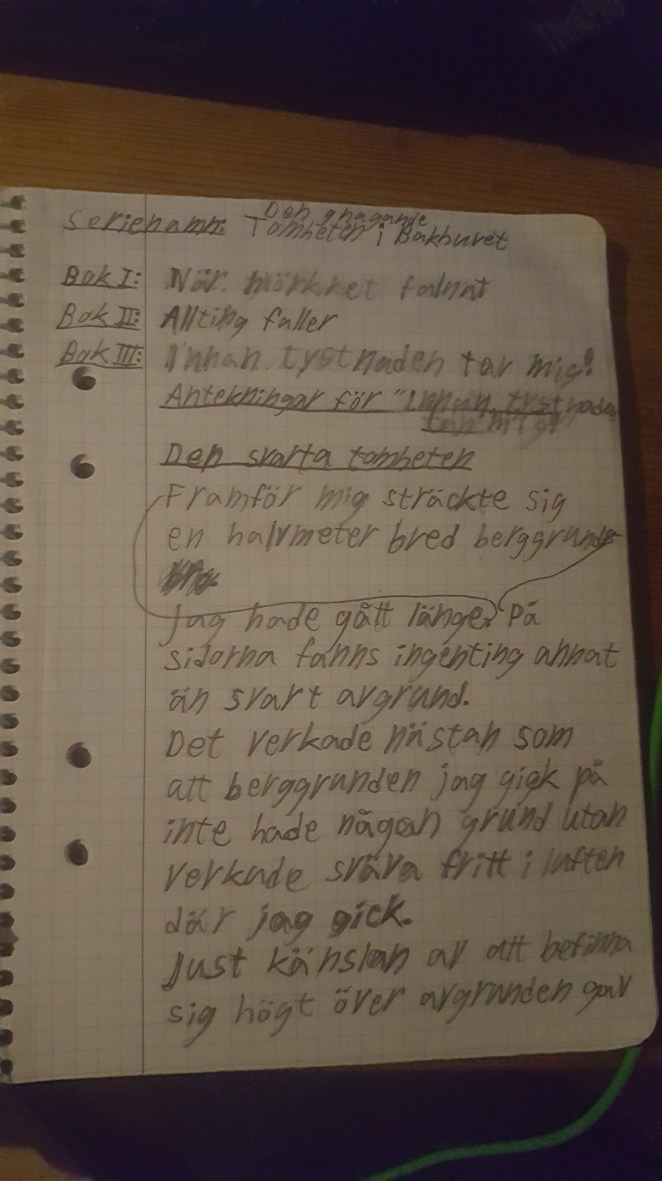 Serienamn: Den gnagande
Tomheten i Bakhuvet
Bok I: När mörkhet falnat
Bok II: Allting faller
Bok III: Innan tystnaden tar mig!
Antekningar för "Innan tystnaden
tar mig!"
Den svarta tomheten
Framför mig sträckte sig
en halvmeter bred berggrund
Jag hade gått länge. På
sidorna fanns ingenting annat
än svart avgrund.
Det verkade nästan som
att berggrunden jag gick på
inte hade någon grund utan
verkade sväva fritt i luften
där jag gick.
Just känslan av att befinna
sig högt över avgrunden gav